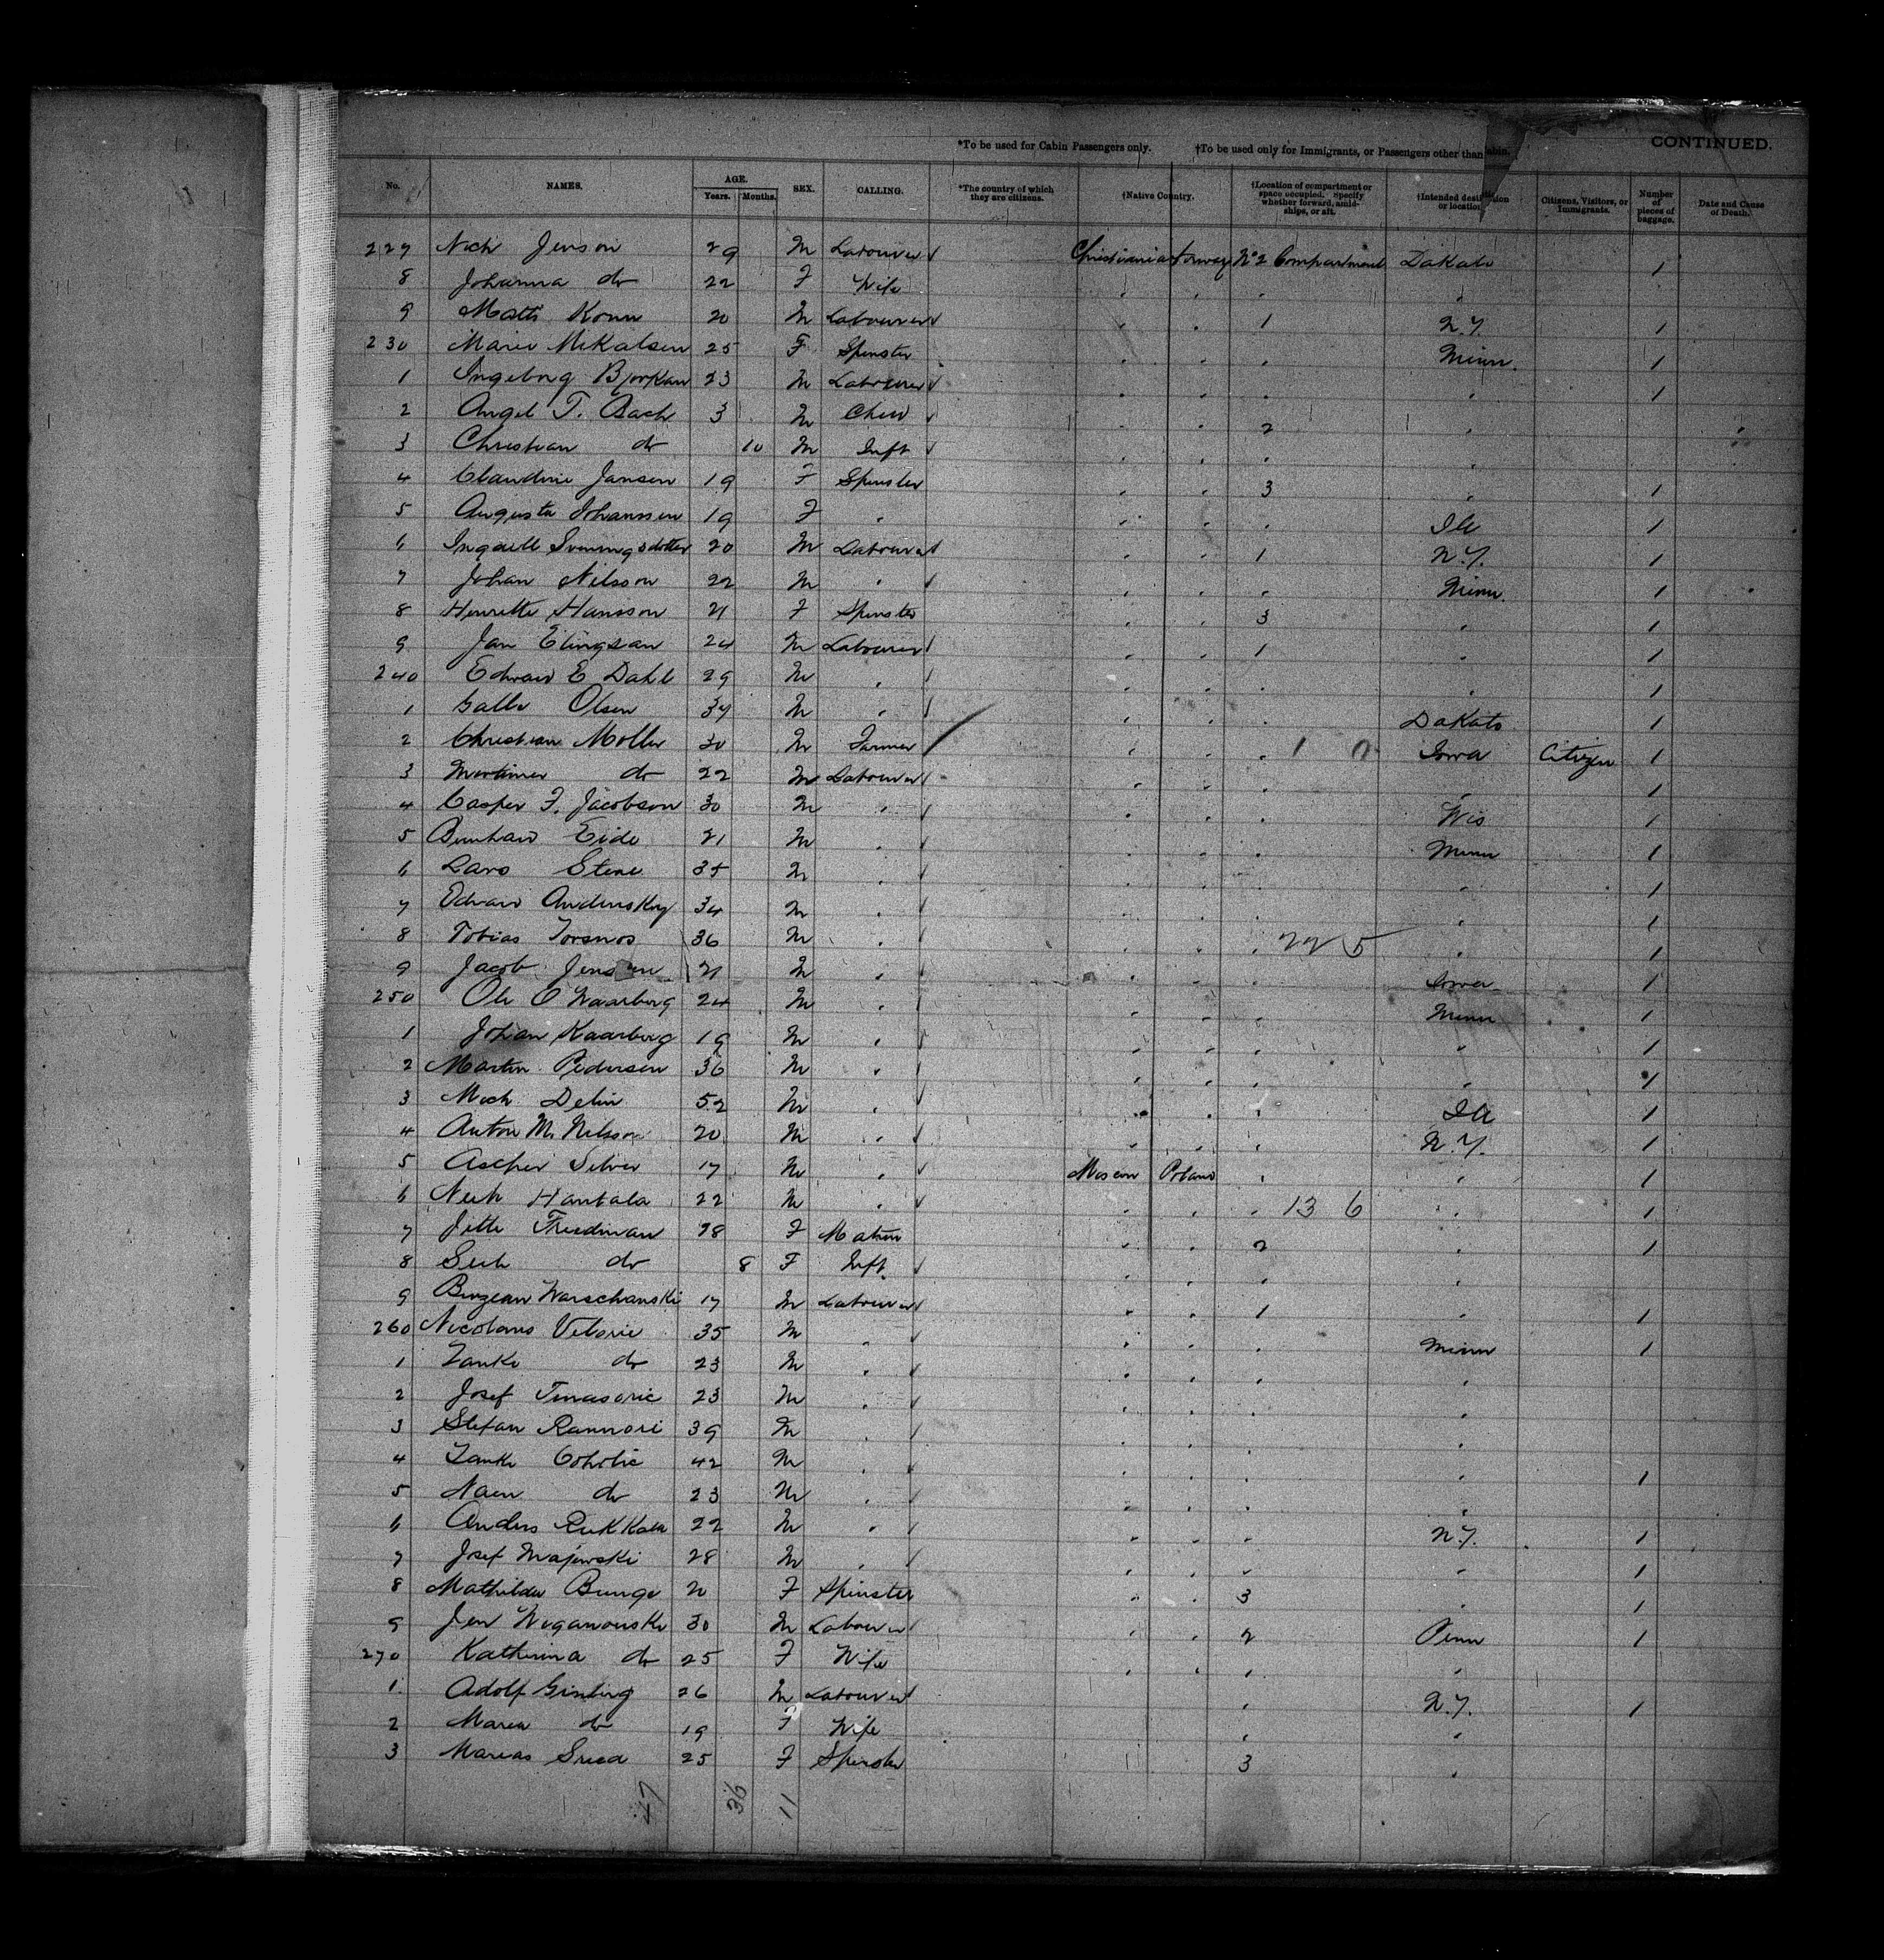 *To be used for Cabin Passengers only. †To be used only for Immigrants, or Passengers other than Cabin. CONTINUED.
No. NAMES. AGE. Years. Months. SEX. CALLING. *The country of which they are citizens. †Native Country. †Location of compartment or space occupied. Specify whether forward, amidships, or aft. †Intended destination or location. Citizens, Visitors, or Immigrants. Number of pieces of baggage. Date and Cause of Death.
227 Nich Jenson 29 M Labourer Christiania Norway No 2 Compartment Dakato 1
8 Johanna do 22 F Wife " " " "
9 Matti 20 M Labourer " " 1 N.Y. 1
230 Marie Mikalsen 25 F Spinster " " " Minn. 1
1 Ingeborg Bjorkan 23 M Labourer " " " " 1
2 Angel T. Bach 3 M Child " " 2 "
3 Christian do 10 M Inft " " " "
4 Claudine Jansen 19 F Spinster " " 3 " 1
5 Augusta Johanssen 19 F " " " " Ill 1
6 20 M Labourer " " 1 N.Y. 1
7 Johan Nilsson 22 M " " " " Minn. 1
8 Henrette Hansson 21 F Spinster " " 3 " 1
9 Jan Elingsan 24 M Labourer " " 1 " 1
240 Edward E Dahl 29 M " " " " " 1
1 Olsen 34 M " " " " Dakato 1
2 Christian Moller 30 M Farmer " " " 1 0 Iowa Citizen 1
3 Mortimer do 22 M Labourer " " " " 1
4 Casper F. Jacobson 30 M " " " " Wis 1
5 Bernhard Eide 21 M " " " " Minn 1
6 Lars Stene 35 M " " " " " 1
7 Edward 34 M " " " " " 1
8 Tobias 36 M " " " " 22 5 " 1
9 Jacob Jensen 21 M " " " " Iowa 1
250 Ole O Kaarberg 24 M " " " " Minn 1
1 Johan Kaarberg 19 M " " " " " 1
2 Martin Pedersen 36 M " " " " " 1
3 Mich Delin 52 M " " " " Ill 1
4 Anton M. Nilsson 20 M " " " " N.Y. 1
5 Ascher Silver 17 M " Moscow Poland " " 1
6 Hantala 22 M " " " " 13 6 " 1
7 Jette Friedman 28 F Matron " " 2 " 1
8 do 8 F Inft. " " " "
9 Warschanski 17 M Labourer " " 1 " 1
260 Nicolaus 35 M " " " " Minn 1
1 do 23 M " " " " "
2 Josef 23 M " " " " "
3 Stefan 39 M " " " " "
4 42 M " " " " " 1
5 do 23 M " " " " "
6 Anders 22 M " " " " N.Y. 1
7 Josef Majewski 28 M " " " " " 1
8 Mathilda Bunge 20 F Spinster " " 3 " 1
9 30 M Labourer " " 2 Penn 1
270 Katherina do 25 F Wife " " " "
1 Adolf 26 M Labourer " N.Y. 1
2 Maria do 19 F Wife " "
3 25 F Spinster 3 "
47 36 11